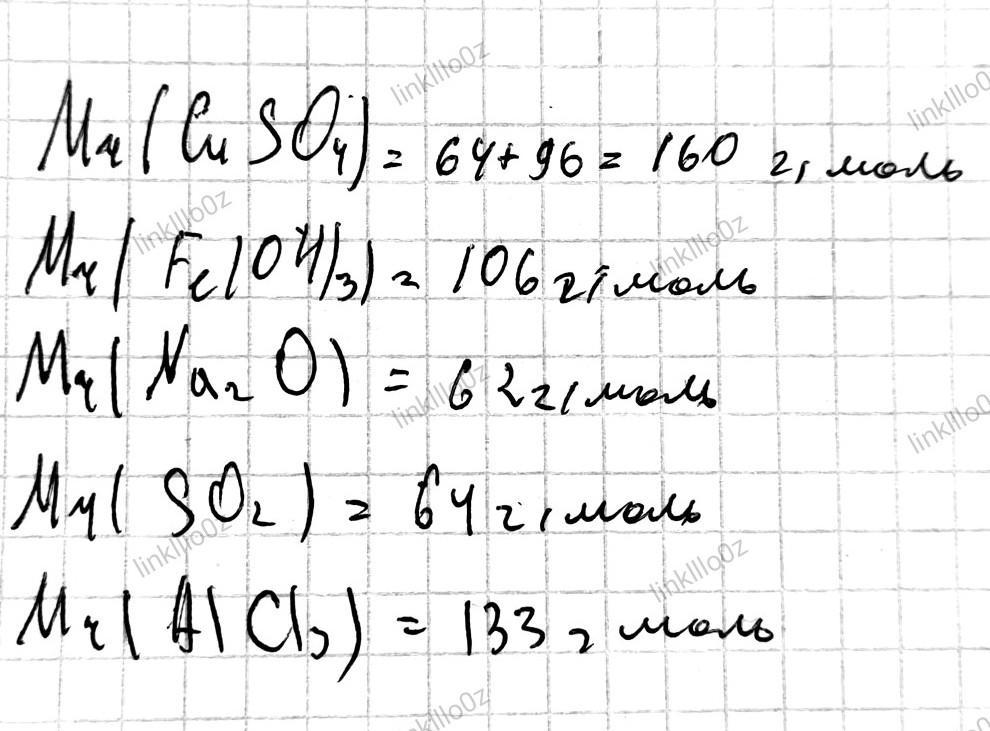 Mr(CuSO4) = 64+96 = 160 г/моль
Mr(Fe(OH)3) = 106 г/моль
Mr(Na2O) = 62 г/моль
Mr(SO2) = 64 г/моль
Mr(AlCl3) = 133 г моль
linklllo0z
linklllo0z
linklllo0z
linklllo0z
linklllo0z
linklllo0z
linklllo0z
linklllo0z
linklllo0z